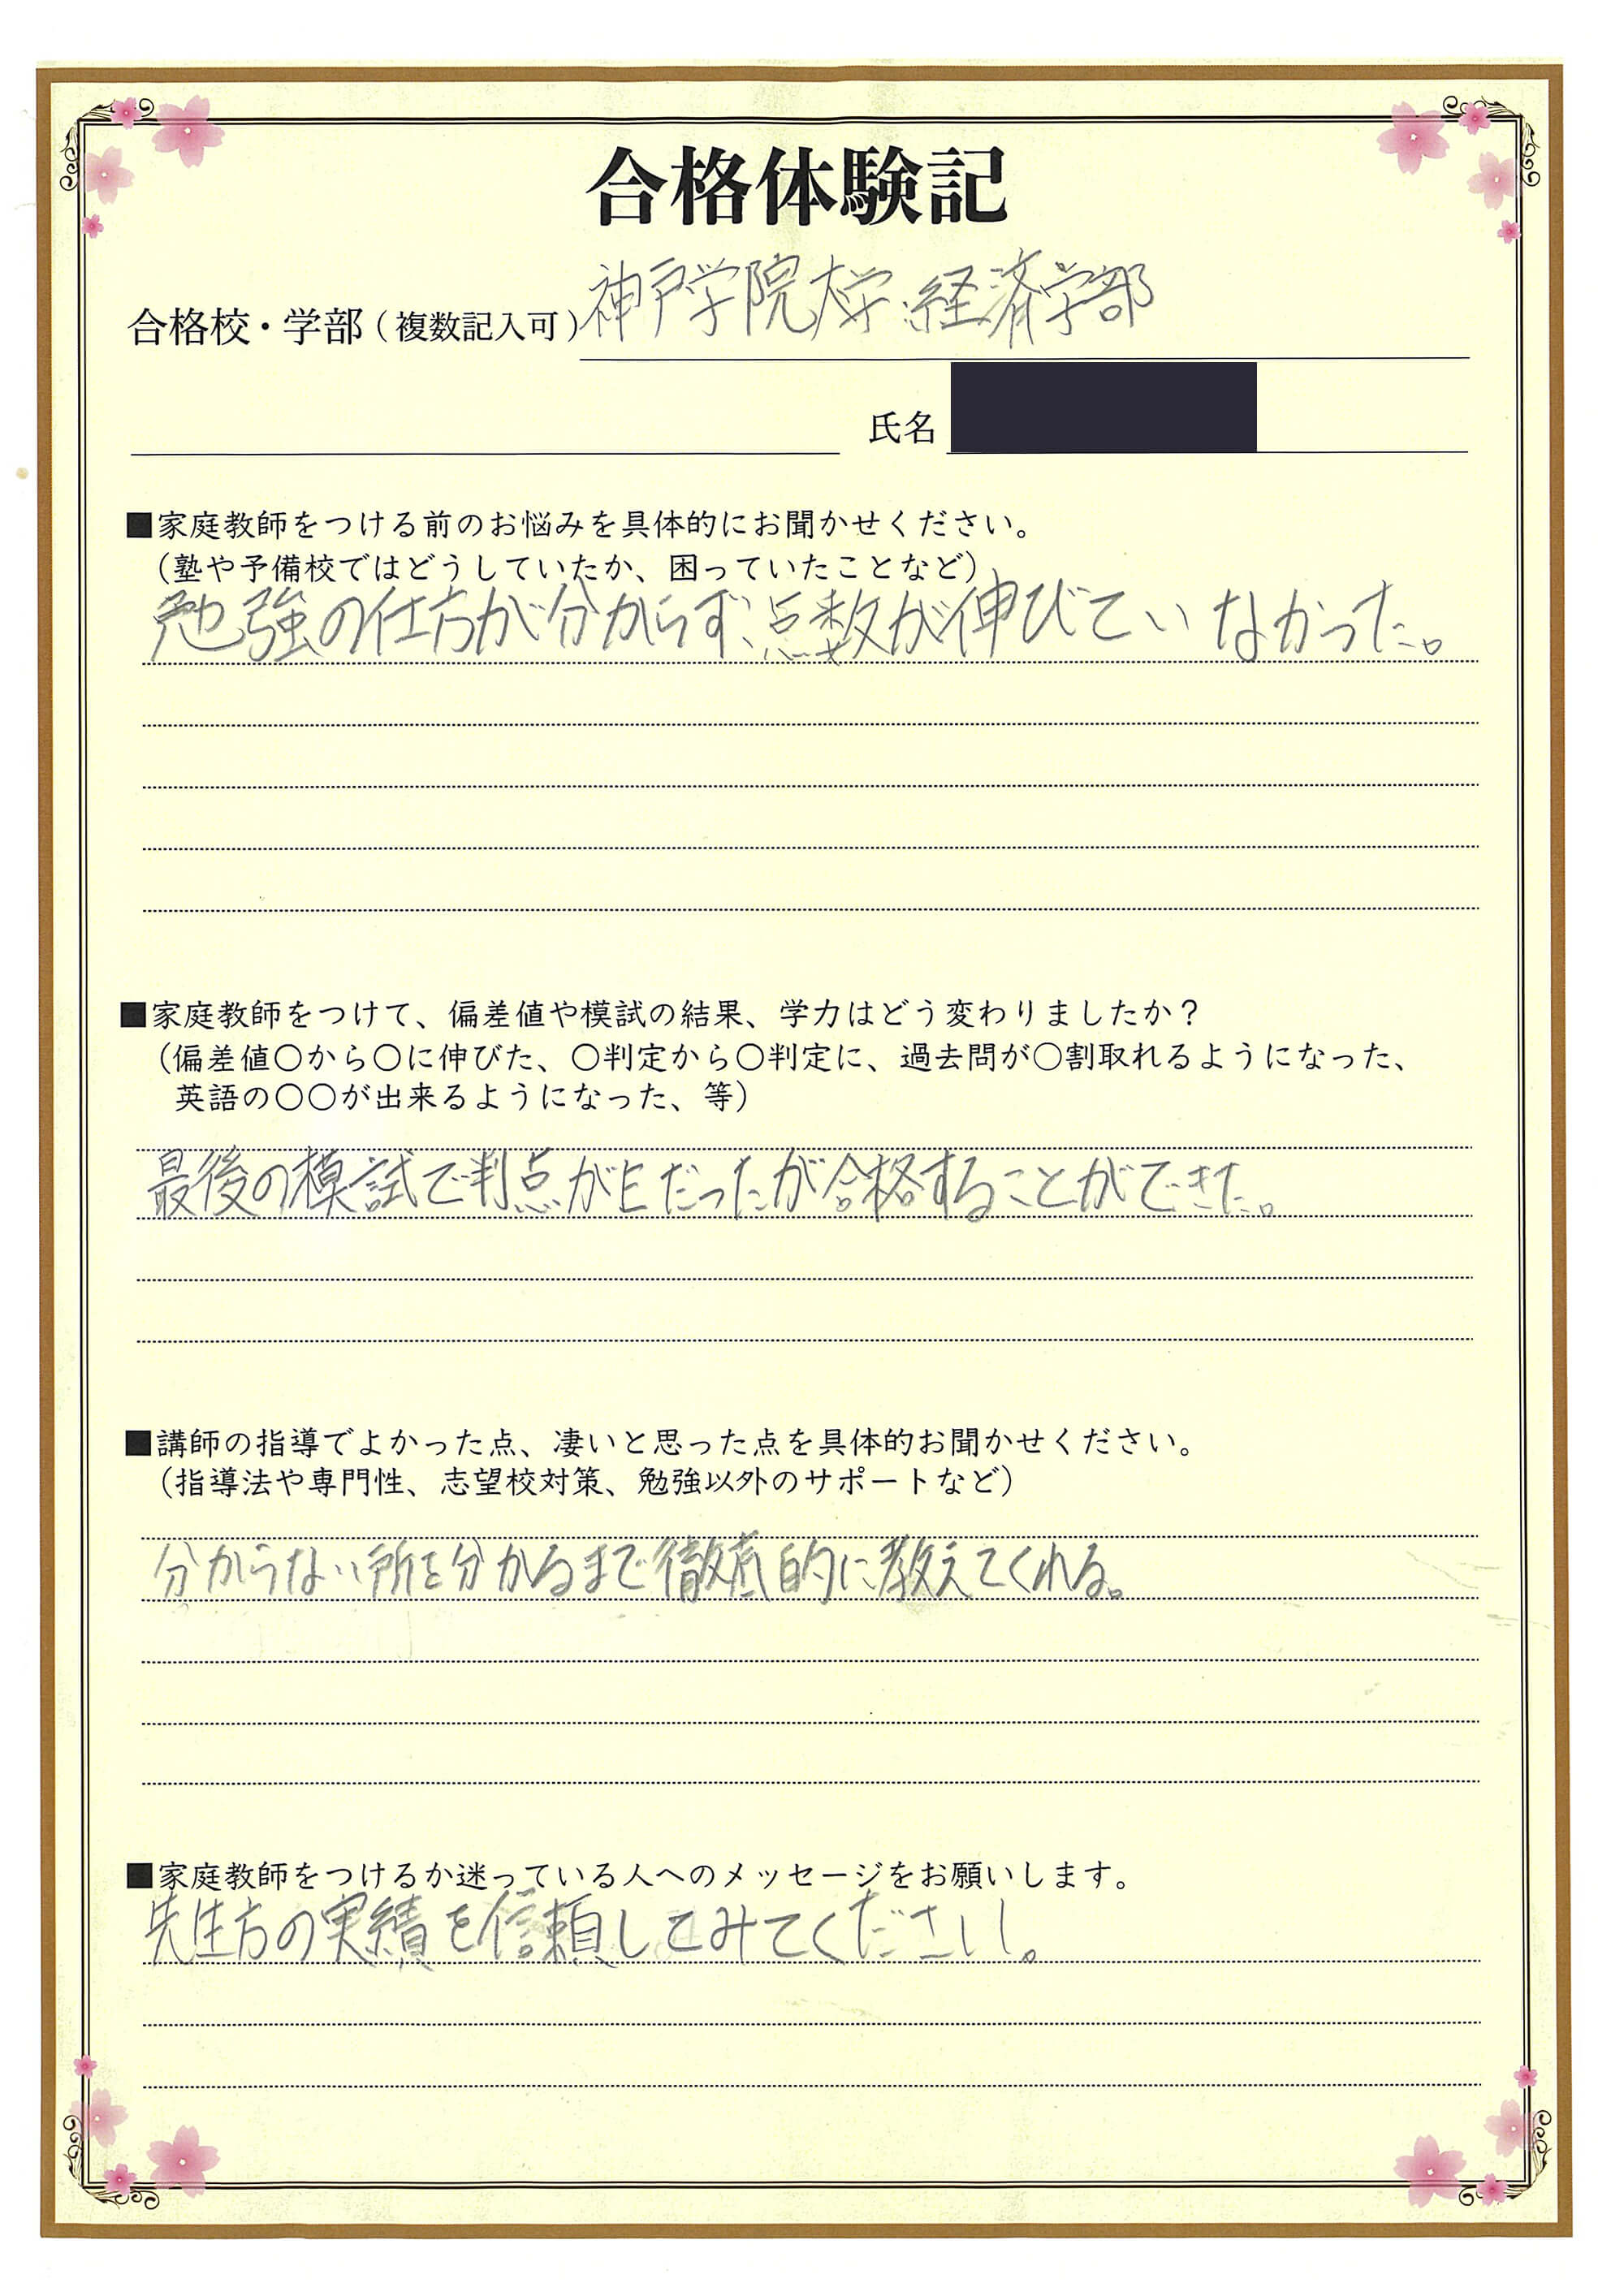 合格体験記
合格校・学部(複数記入可)神戸学院大学 経済学部
氏名
■家庭教師をつける前のお悩みを具体的にお聞かせください。
(塾や予備校ではどうしていたか、困っていたことなど)
勉強の仕方が分からず、点数が伸びていなかった。
■家庭教師をつけて、偏差値や模試の結果、学力はどう変わりましたか？
(偏差値〇から〇に伸びた、〇判定から〇判定に、過去問が〇割取れるようになった、
英語の〇〇が出来るようになった、等)
最後の模試で判点がEだったが合格することができた。
■講師の指導でよかった点、凄いと思った点を具体的お聞かせください。
(指導法や専門性、志望校対策、勉強以外のサポートなど)
分からない所を分かるまで徹底的に教えてくれる。
■家庭教師をつけるか迷っている人へのメッセージをお願いします。
先生方の実績を信頼してみてください。